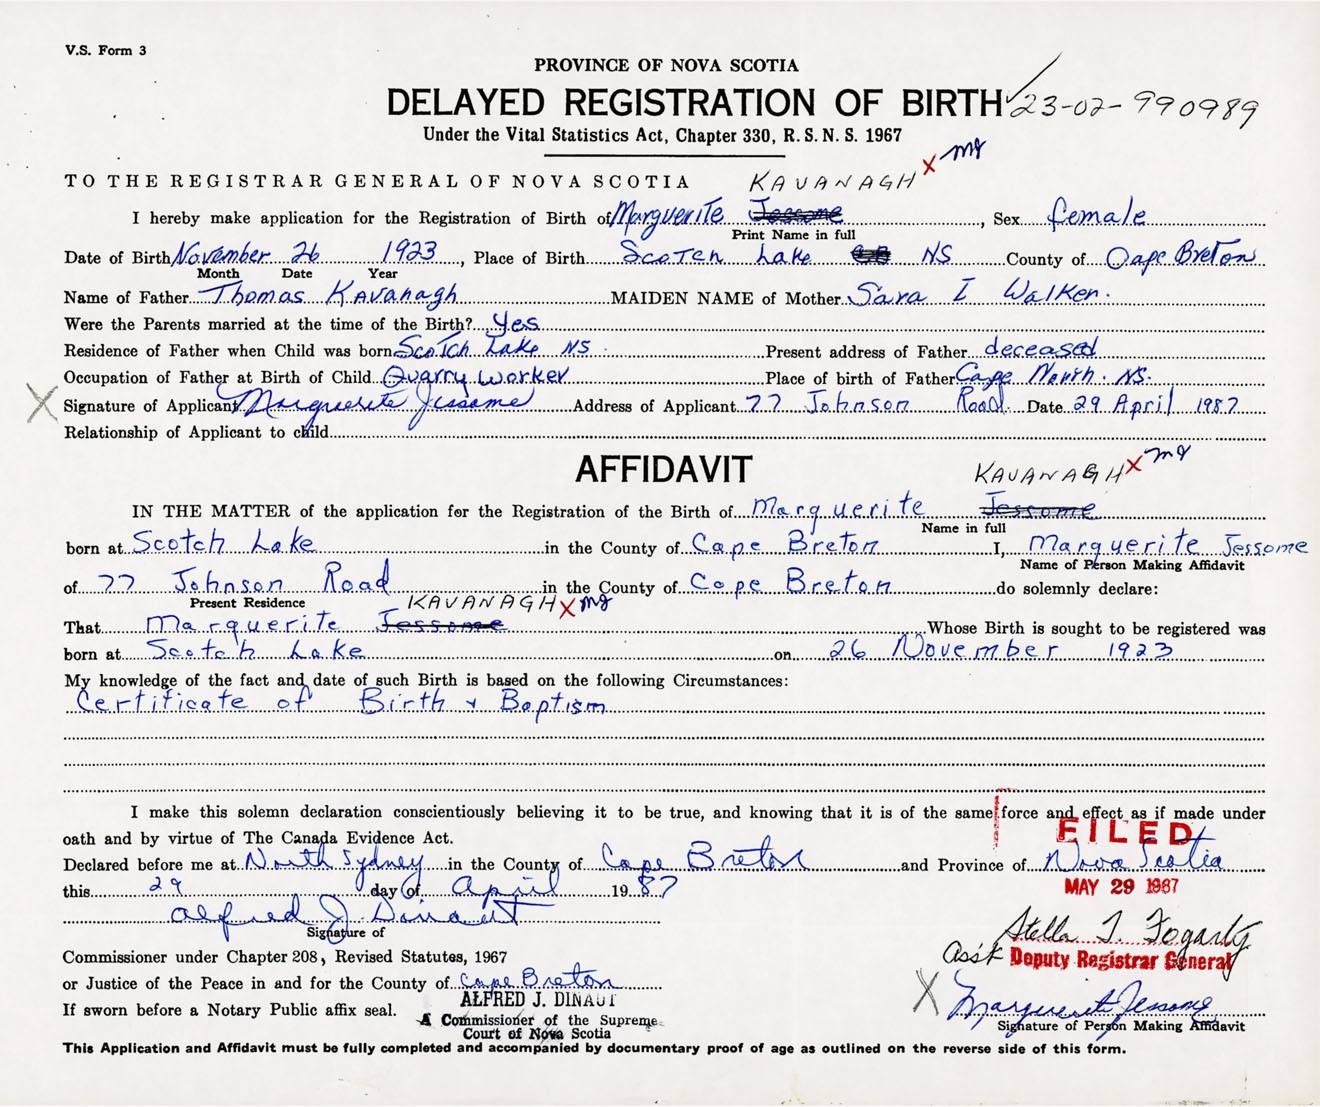 V.S. Form 3
PROVINCE OF NOVA SCOTIA
DELAYED REGISTRATION OF BIRTH 23-02-990989
Under the Vital Statistics Act, Chapter 330, R. S. N. S. 1967
TO THE REGISTRAR GENERAL OF NOVA SCOTIA KAVANAGH X MJ
I hereby make application for the Registration of Birth of Marguerite Jessome, Sex female
Print Name in full
Date of Birth November 26 1923, Place of Birth Scotch Lake CB NS County of Cape Breton
Month Date Year
Name of Father Thomas Kavanagh MAIDEN NAME of Mother Sara I Walker.
Were the Parents married at the time of the Birth? Yes
Residence of Father when Child was born Scotch Lake NS. Present address of Father deceased
Occupation of Father at Birth of Child Quarry worker Place of birth of Father Cape North. NS.
X Signature of Applicant Marguerite Jessome Address of Applicant 77 Johnson Road. Date 29 April 1987
Relationship of Applicant to child
AFFIDAVIT KAVANAGH X MJ
IN THE MATTER of the application for the Registration of the Birth of Marguerite Jessome
Name in full
born at Scotch Lake in the County of Cape Breton I, Marguerite Jessome
Name of Person Making Affidavit
of 77 Johnson Road in the County of Cape Breton do solemnly declare:
Present Residence KAVANAGH X MJ
That Marguerite Jessome Whose Birth is sought to be registered was
born at Scotch Lake on 26 November 1923
My knowledge of the fact and date of such Birth is based on the following Circumstances:
Certificate of Birth + Baptism
I make this solemn declaration conscientiously believing it to be true, and knowing that it is of the same force and effect as if made under
oath and by virtue of The Canada Evidence Act.
FILED
Declared before me at North Sydney in the County of Cape Breton and Province of Nova Scotia
this 29 day of April 1987
MAY 29 1987
Alfred J. Dinaut
Signature of
Stella T. Fogarty
Commissioner under Chapter 208, Revised Statutes, 1967
Ass't Deputy Registrar General
or Justice of the Peace in and for the County of Cape Breton
ALFRED J. DINAUT
X Marguerite Jessome
If sworn before a Notary Public affix seal.
A Commissioner of the Supreme
Court of Nova Scotia
Signature of Person Making Affidavit
This Application and Affidavit must be fully completed and accompanied by documentary proof of age as outlined on the reverse side of this form.